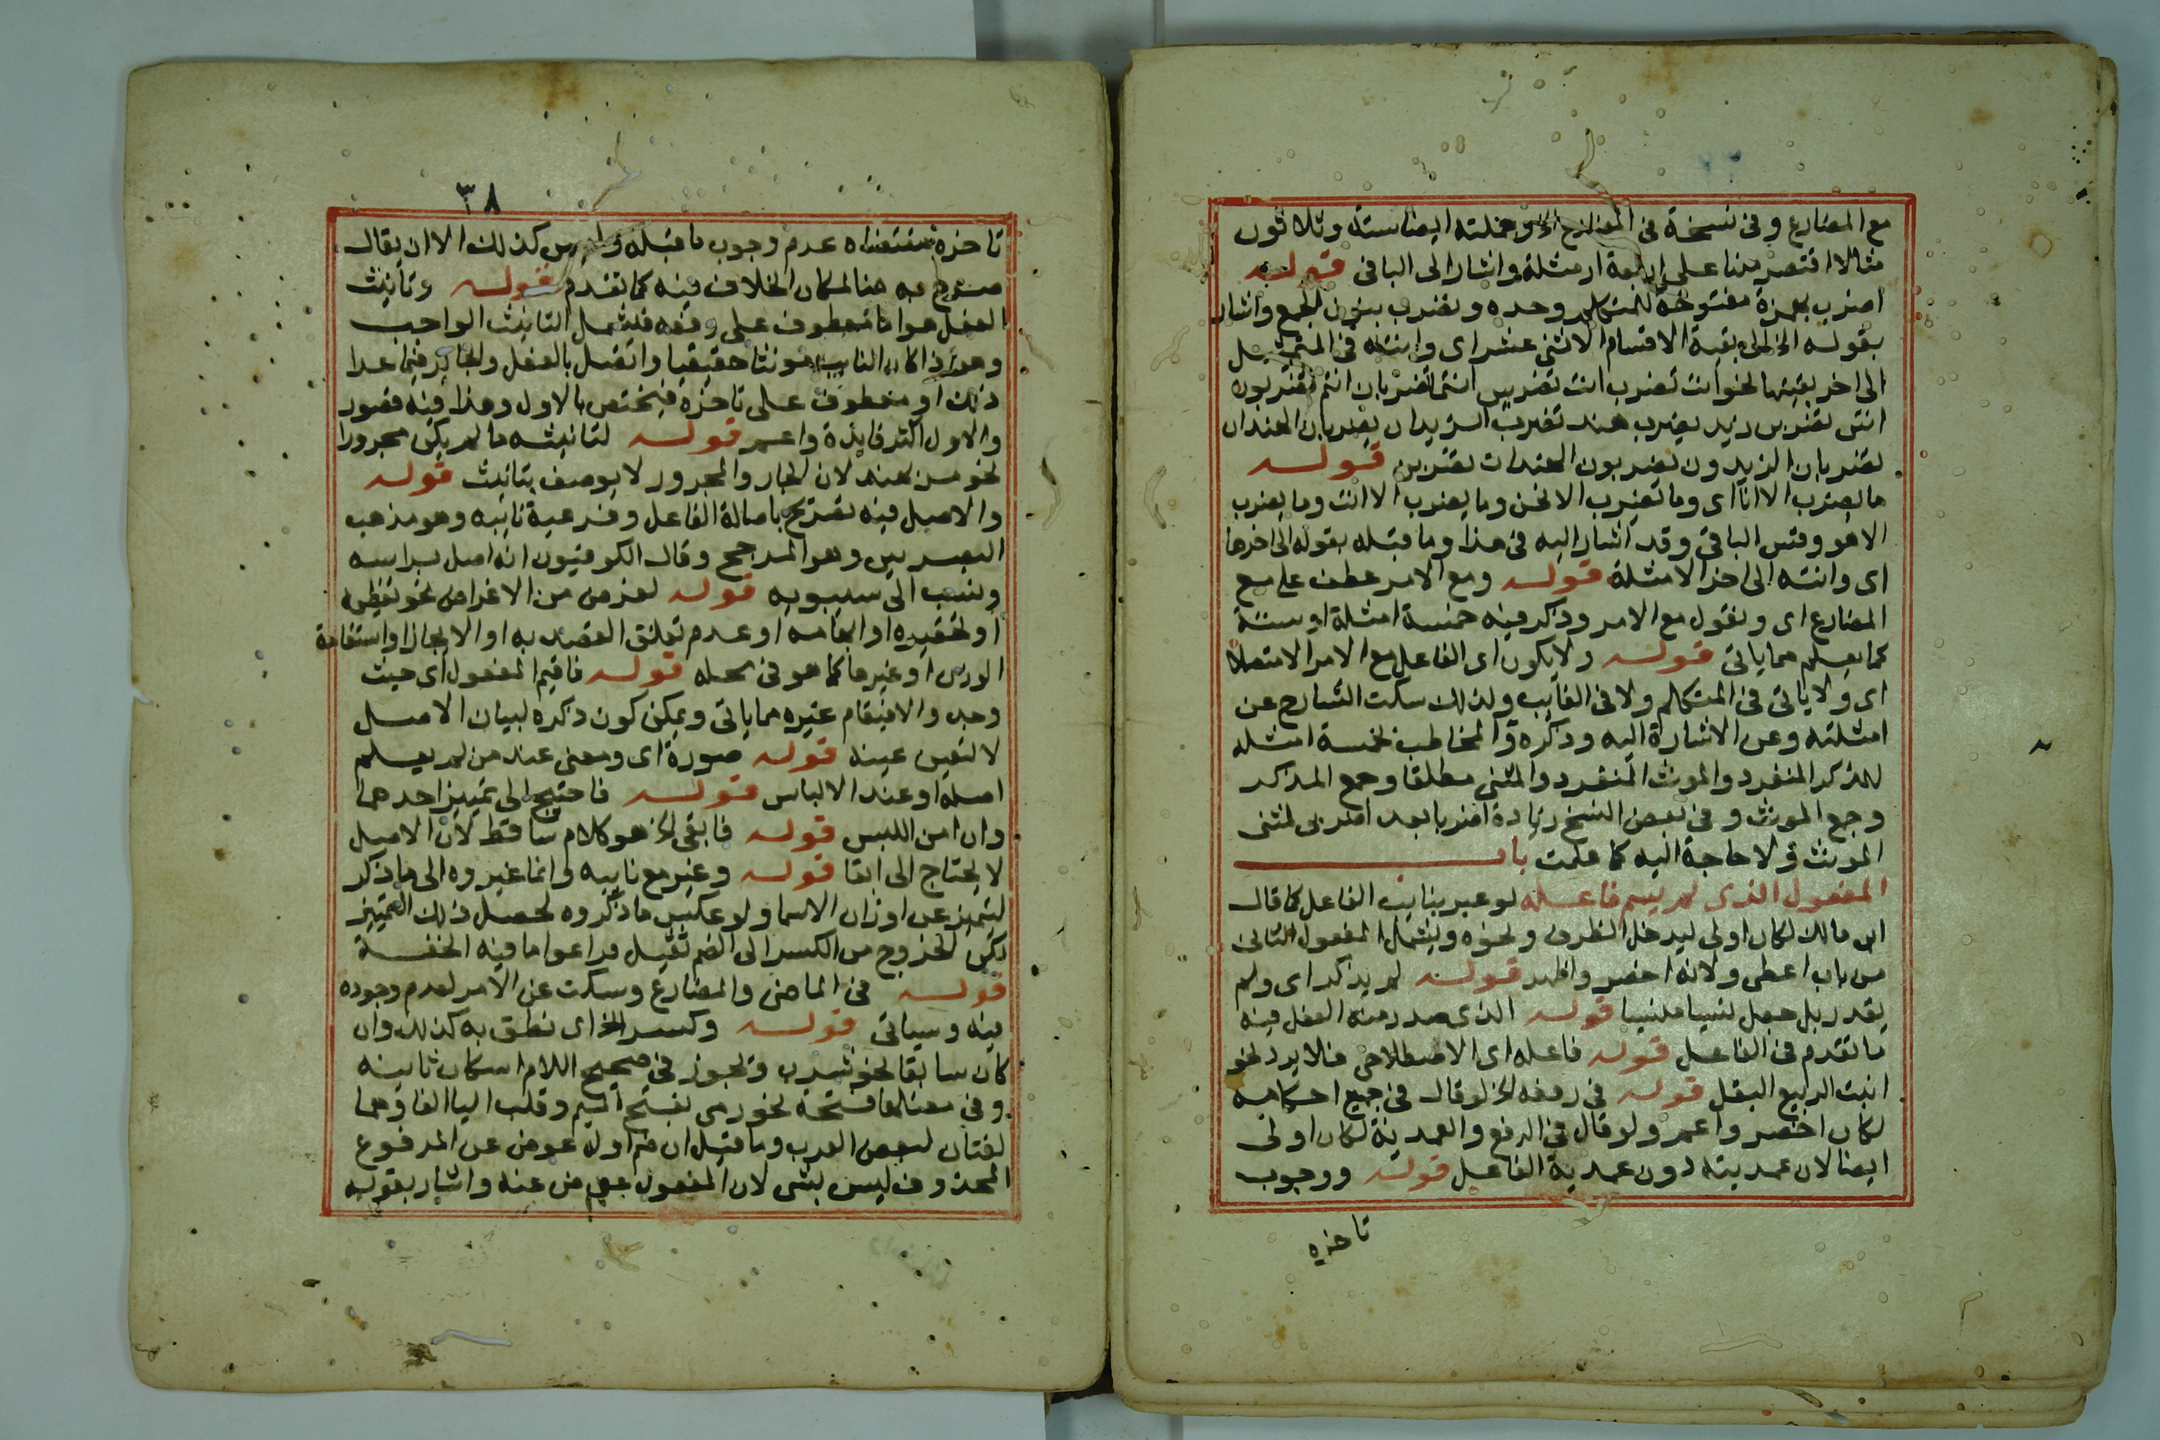 مع المضارع وفى نسخة فى المضارع الخ وجملته ايضا ستة وثلاثون
مثالا اقتصر منا على اربعة امثلة واشار الى الباقى قوله
اضرب بهمزة مفتوحة للمتكلم وحده ونضرب بنون الجمع واشار
بقوله الخ الى بقية الاقسام الاثنى عشر اى وانته فى التمثيل
الى اخر بقيتها نحو انت تضرب انت تضربين انتما تضربان انتم تضربون
انتن تضربن زيد يضرب هند تضرب الزيدان يضربان الهندان
تضربان الزيدون يضربون الهندات يضربن قوله
ما يضرب الا انا اى وما يضرب الا نحن وما يضرب الا انت وما يضرب
الا هو وقس الباقى وقد اشار اليه فى هذا وما قبله بقوله الى اخرها
اى وانته الى اخر الامثلة قوله ومع الامر عطف على مع
المضارع اى ونقول مع الامر وذكر فيه خمسة امثلة او ستة
كما يعلم مما ياتى قوله ولا يكون اى الفاعل مع الامر الا متصلا
اى ولا ياتى فى المتكلم ولا فى الغايب ولذلك سكت الشارح عن
امثلته وعن الاشارة اليه وذكره فى المخاطب خمسة امثلة
للمذكر المنفرد والمونث المنفرد والمثنى مطلقا وجمع المذكر
وجمع المونث وفى بعض النسخ زيادة اضربا بعد اضربى لمثنى
المونث ولا حاجة اليه كما علمت باب
المفعول الذى لم يسم فاعله لو عبر بنايب الفاعل كما قال
ابن مالك لكان اولى ليدخل الظرف ونحوه ويشمل المفعول الثانى
من باب اعطى ولانه اخصر واظهر قوله لم يذكر اى ولم
يقدر بل جعل نسيا منسيا قوله الذى صدر منه الفعل فيه
ما تقدم فى الفاعل قوله فاعله اى الاصطلاحى فلا يرد نحو
انبت الربيع البقل قوله فى رفعه الخ لو قال فى جميع احكامه
لكان اخصر واعم ولو قال فى الرفع والعمدية لكان اولى
ايضا لان عمديته دون عمدية الفاعل قوله ووجوب
تاخره
٣٨
تاخره مقتضاه عدم وجوب ما قبله وليس كذلك الا ان يقال
صرح به هنا لمكان الخلاف فيه كما تقدم قوله وتانيث
الفعل هو اما معطوف على رفعه فيشمل التانيث الواجب
وهو اذا كان النايب مونثا حقيقيا واتصل بالفعل والجايز فيما عدا
ذلك او معطوف على تاخره فيختص بالاول وهذا فيه قصور
والاول اكثر فايدة واعم قوله لتانيثه ما لم يكن مجرورا
نحو مر بهند لان الجار والمجرور لا يوصف بتانيث قوله
والاصل فيه تصريح باصالة الفاعل وفرعية نايبه وهو مذهب
البصريين وهو المرجح وقال الكوفيون انه اصل براسه
ونسب الى سيبويه قوله لغرض من الاغراض نحو تعظيمه
او تحقيره او ابهامه او عدم تعلق القصد به او الايجاز او استقامة
الوزن او غيرها كما هو فى محله قوله فاقيم المفعول اى حيث
وجد والا فيقام غيره مما ياتى ويمكن كون ذكره لبيان الاصل
لا لتعين عينه قوله صورة اى ومعنى عند من لم يعلم
اصله او عند الالباس قوله فاحتيج الى تمييز احدهما
وان امن اللبس قوله فابقى الخ هو كلام ساقط لان الاصل
لا يحتاج الى ابقا قوله وغير مع نايبه وانما غيروه الى ما ذكر
ليتميز عن اوزان الاسما ولو عكس ما ذكروه لحصل ذلك التمييز
لكن الخروج من الكسر الى الضم ثقيل فراعوا ما فيه الخفة
قوله فى الماضى والمضارع وسكت عن الامر لعدم وجوده
فيه وسياتى قوله وكسر الخ اى نطق به كذلك وان
كان سابقا نحو شرب وتجوز فى صحيح اللام اسكان ثانيه
وفى معتلها فتحة نحو رمى بفتح الميم وقلب اليا الفا وهما
لغتان لبعض العرب وما قيل ان ضم اوله عوض عن المرفوع
المحذوف ليس بشى لان المفعول عوض عنه واشار بقوله